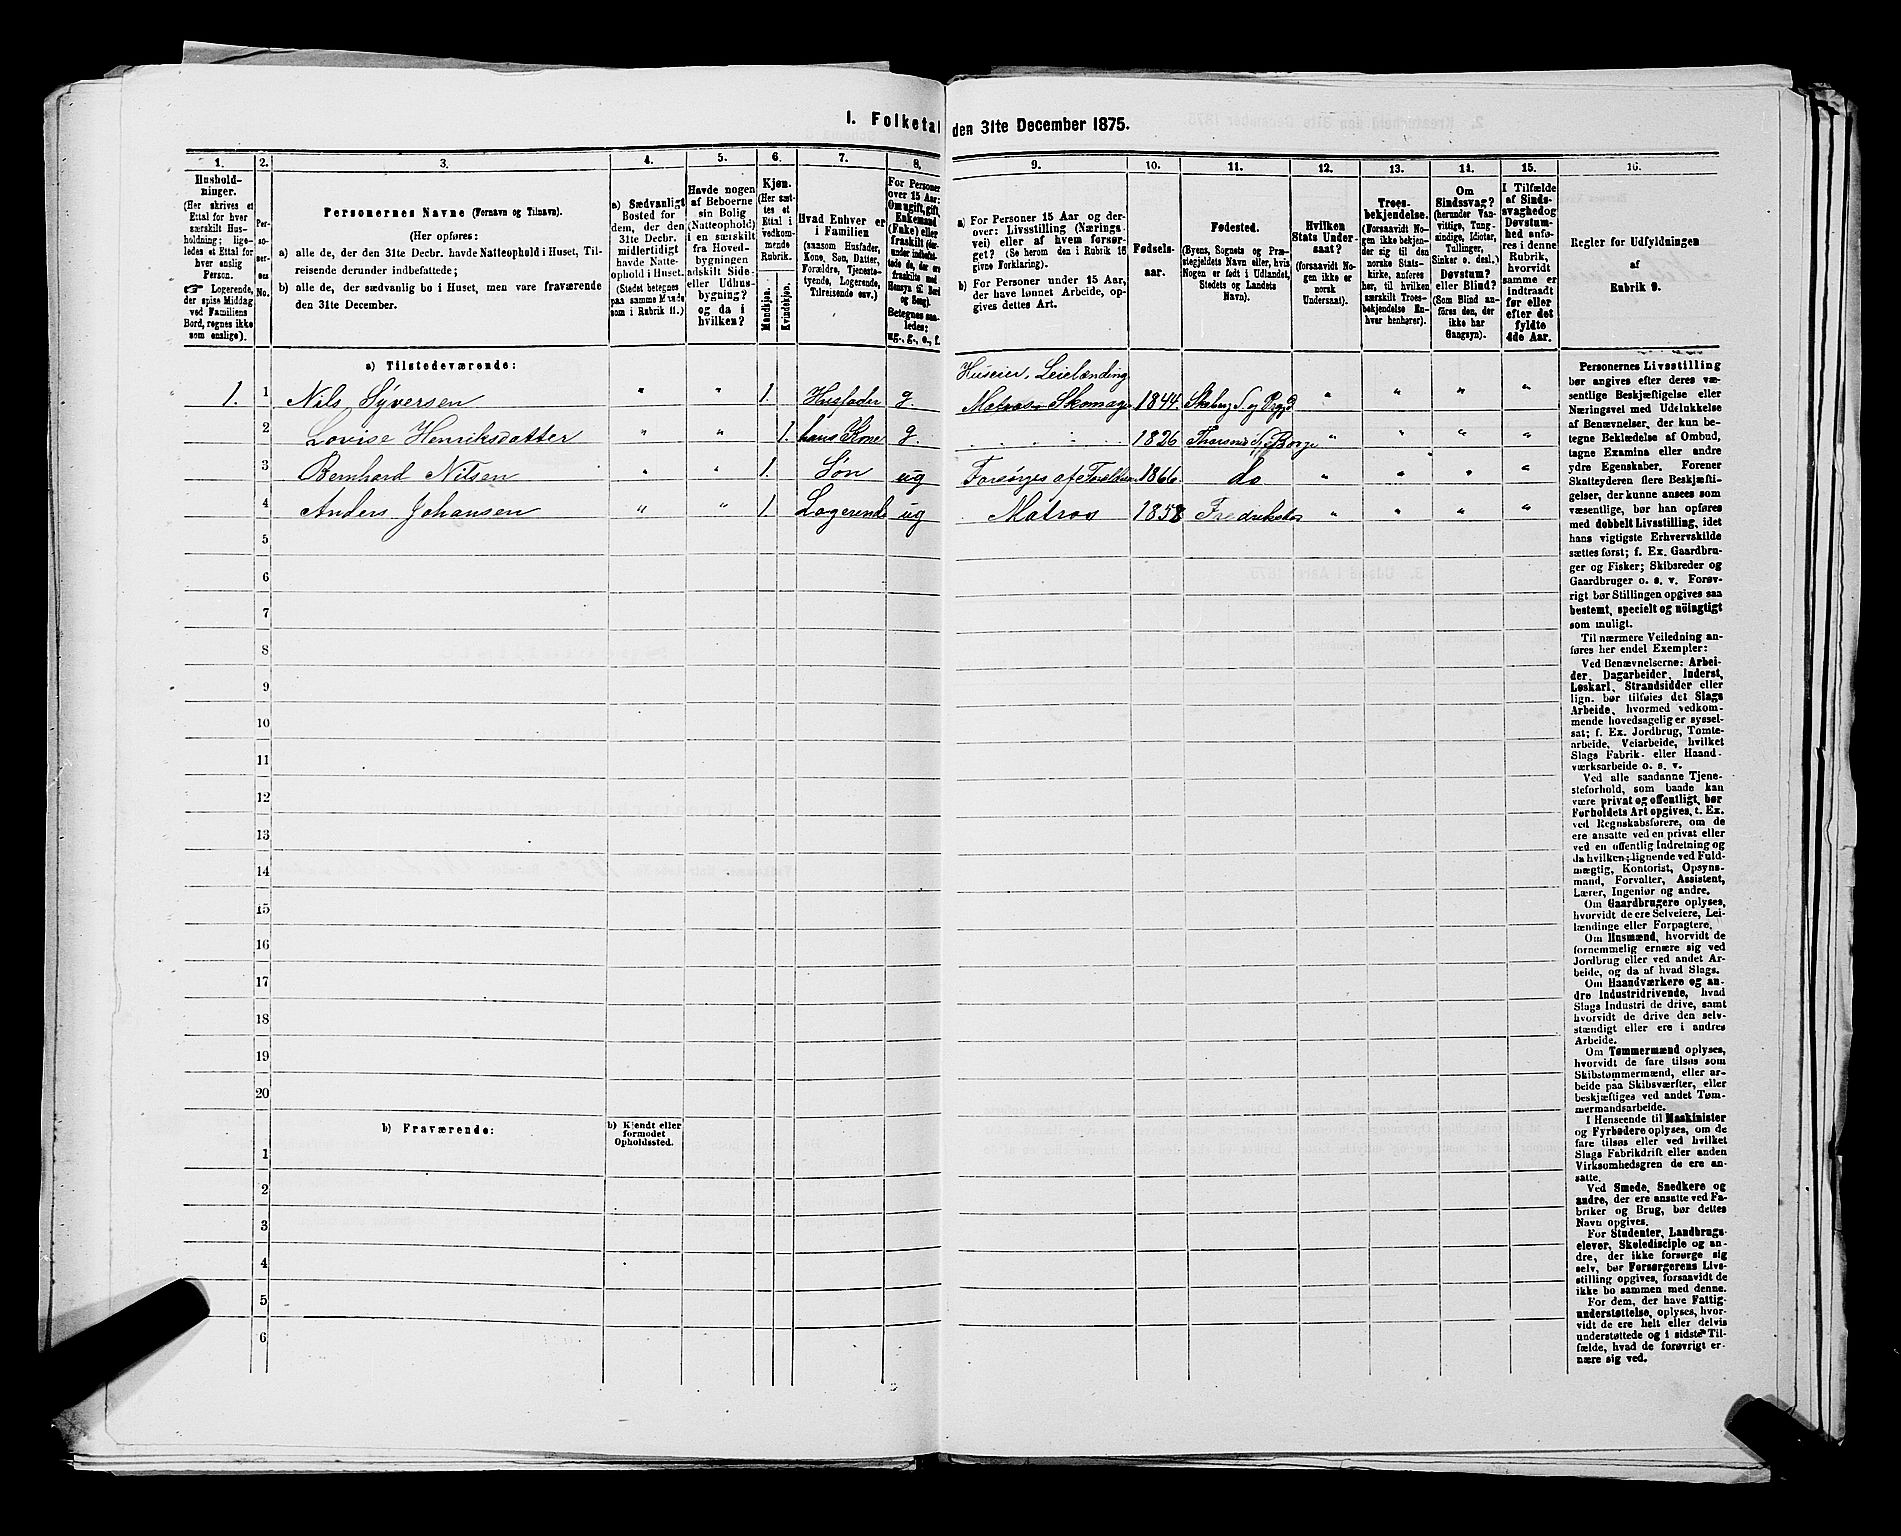 1. Folketal den 31te December 1875.
1. 2. 3. 4. 5. 6. 7. 8. 9. 10. 11. 12. 13. 14. 15. 16.
Hushold-
ninger.
(Her skrives et
Ettal for hver
særskilt Hus-
holdning; lige-
ledes et Ettal for
hver enslig
Person.
☞ Logerende,
der spise Middag
ved Familiens
Bord, regnes ikke
som enslige).
Per-
so-
ner-
nes
No.
Personernes Navne (Fornavn og Tilnavn).
(Her opføres:
a) alle de, der den 31te Decbr. havde Natteophold i Huset, Til-
reisende derunder indbefattede;
b) alle de, der sædvanlig bo i Huset, men vare fraværende
den 31te December.
a) Sædvanligt
Bosted for
dem, der den
31te Decbr.
midlertidigt
havde Natte-
ophold i Huset.
(Stedet betegnes
paa samme Maade
som i Rubrik 11.)
Havde nogen
af Beboerne
sin Bolig
(Natteophold)
i en særskilt
fra Hoved-
bygningen
adskilt Side-
eller Udhus-
bygning?
og da i
hvilken?
Kjøn.
(Her sæt-
tes et
Ettal i
vedkom-
mende
Rubrik.
Mandkjøn.
Kvindekjøn.
Hvad Enhver er
i Familien
(saasom Husfader,
Kone, Søn, Datter,
Forældre, Tjeneste-
tyende, Logerende,
Tilreisende osv.)
For Personer
over 15 Aar:
Om ugift, gift,
Enkemand
(Enke) eller
fraskilt (der-
under indbefat-
tede de, der ere
fraskilte med
Hensyn til Bord
og Seng).
Betegnes saa-
ledes:
ug., g., e., f.
a) For Personer 15 Aar og der-
over: Livsstilling (Nærings-
vei) eller af hvem forsør-
get? (Se herom den i Rubrik 16
givne Forklaring).
b) For Personer under 15 Aar,
der have lønnet Arbeide, op-
gives dettes Art.
Fødsels-
aar.
Fødested.
(Byens, Sognets og Præ-
stegjeldets Navn eller, hvis
Nogen er født i Udlandet,
Stedets og Landets
Navn).
Hvilken
Stats Under-
saat?
(forsaavidt No-
gen ikke er
norsk
Undersaat).
Troes-
bekjendelse.
(Forsaavidt No-
gen ikke bekjen-
der sig til den
norske Stats-
kirke, anføres
her, til hvilken
særskilt Troes-
bekjendelse En-
hver henhører).
Om
Sindssvag?
(herunder Van-
vittige, Tung-
sindige, Idioter,
Tullinger,
Sinker o. desl.)
Døvstum?
eller Blind?
(Som Blind an-
føres den, der
ikke har
Gangsyn).
I Tilfælde
af Sinds-
svaghed og
Døvstum-
hed anfø-
res i denne
Rubrik,
hvorvidt
samme er
indtraadt
før eller
efter det
fyldte
4de Aar.
Regler for Udfyldningen
af
Rubrik 9.
a) Tilstedeværende:
Huseier, Leielænding
1. 1 Nils Syversen " " 1. Husfader g. Matros 1844 " " " "
2 Lovise Henriksdatter " " 1. hans Kone g. 1826 " " " "
3 Bernhard Nilsen " " 1. Søn ug Forsørges af 1866. do " " " "
4 Anders Johansen " " 1. Logerende ug Matros 1858 " " " "
5
6
7
8
9
10
11
12
13
14
15
16
17
18
19
20
b) Fraværende:
b) Kjendt eller
formodet
Opholdssted.
1
2
3
4
5
6
Personernes Livsstilling
bør angives efter deres væ-
sentlige Beskjæftigelse eller
Næringsvei med Udelukkelse
af Benævnelser, der kun be-
tegne Beklædelse af Ombud,
tagne Examina eller andre
ydre Egenskaber. Forener
Skatteyderen flere Beskjæfti-
gelser, der kunne ansees som
væsentlige, bør han opføres
med dobbelt Livsstilling, idet
hans vigtigste Erhvervskilde
sættes først; f. Ex. Gaardbru-
ger og Fisker; Skibsreder og
Gaardbruger o. s. v. Forøv-
rigt bør Stillingen opgives saa
bestemt, specielt og nöiagtigt
som muligt.
Til nærmere Veiledning an-
føres her endel Exempler:
Ved Benævnelserne: Arbei-
der, Dagarbeider, Inderst,
Løskarl, Strandsidder eller
lign. bør tilføies det Slags
Arbeide, hvormed vedkom-
mende hovedsagelig er syssel-
sat; f. Ex. Jordbrug, Tomte-
arbeide, Veiarbeide, hvilket
Slags Fabrik- eller Haand-
værksarbeide o. s. v.
Ved alle saadanne Tjene-
steforhold, som baade kan
være privat og offentligt, bør
Forholdets Art opgives, t. Ex.
ved Regnskabsførere, om de
ere ansatte ved en privat eller
ved en offentlig Indretning og
da hvilken; lignende ved Fuld-
mægtig, Kontorist, Opsyns-
mand, Forvalter, Assistent,
Lærer, Ingeniør og andre.
Om Gaardbrugere oplyses,
hvorvidt de ere Selveiere, Lei-
lændinge eller Forpagtere.
Om Husmænd, hvorvidt de
fornemmelig ernære sig ved
Jordbrug eller ved andet Ar-
beide, og da af hvad Slags.
Om Haandværkere og an-
dre Industridrivende, hvad
Slags Industri de drive, samt
hvorvidt de drive den selv-
stændigt eller ere i andres
Arbeide.
Om Tømmermænd oplyses,
hvorvidt de fare tilsøs som
Skibstømmermænd, eller ar-
beide paa Skibsværfter, eller
beskjæftiges ved andet Tøm-
mermandsarbeide.
I Henseende til Maskinister
og Fyrbødere oplyses, om de
fare tilsøs eller ved hvilket
Slags Fabrikdrift eller anden
Virksomhedsgren de ere an-
satte.
Ved Smede, Snedkere og
andre, der ere ansatte ved Fa-
briker og Brug, bør dettes
Navn opgives.
For Studenter, Landbrugs-
elever, Skoledisciple og an-
dre, der ikke forsørge sig
selv, bør Forsørgerens Livs-
stilling opgives, forsaavidt de
ikke bo sammen med denne.
For dem, der have Fattig-
understøttelse, oplyses, hvor-
vidt de ere helt eller delvis
understøttede og i sidste Til-
fælde, hvad de forøvrigt er-
nære sig ved.